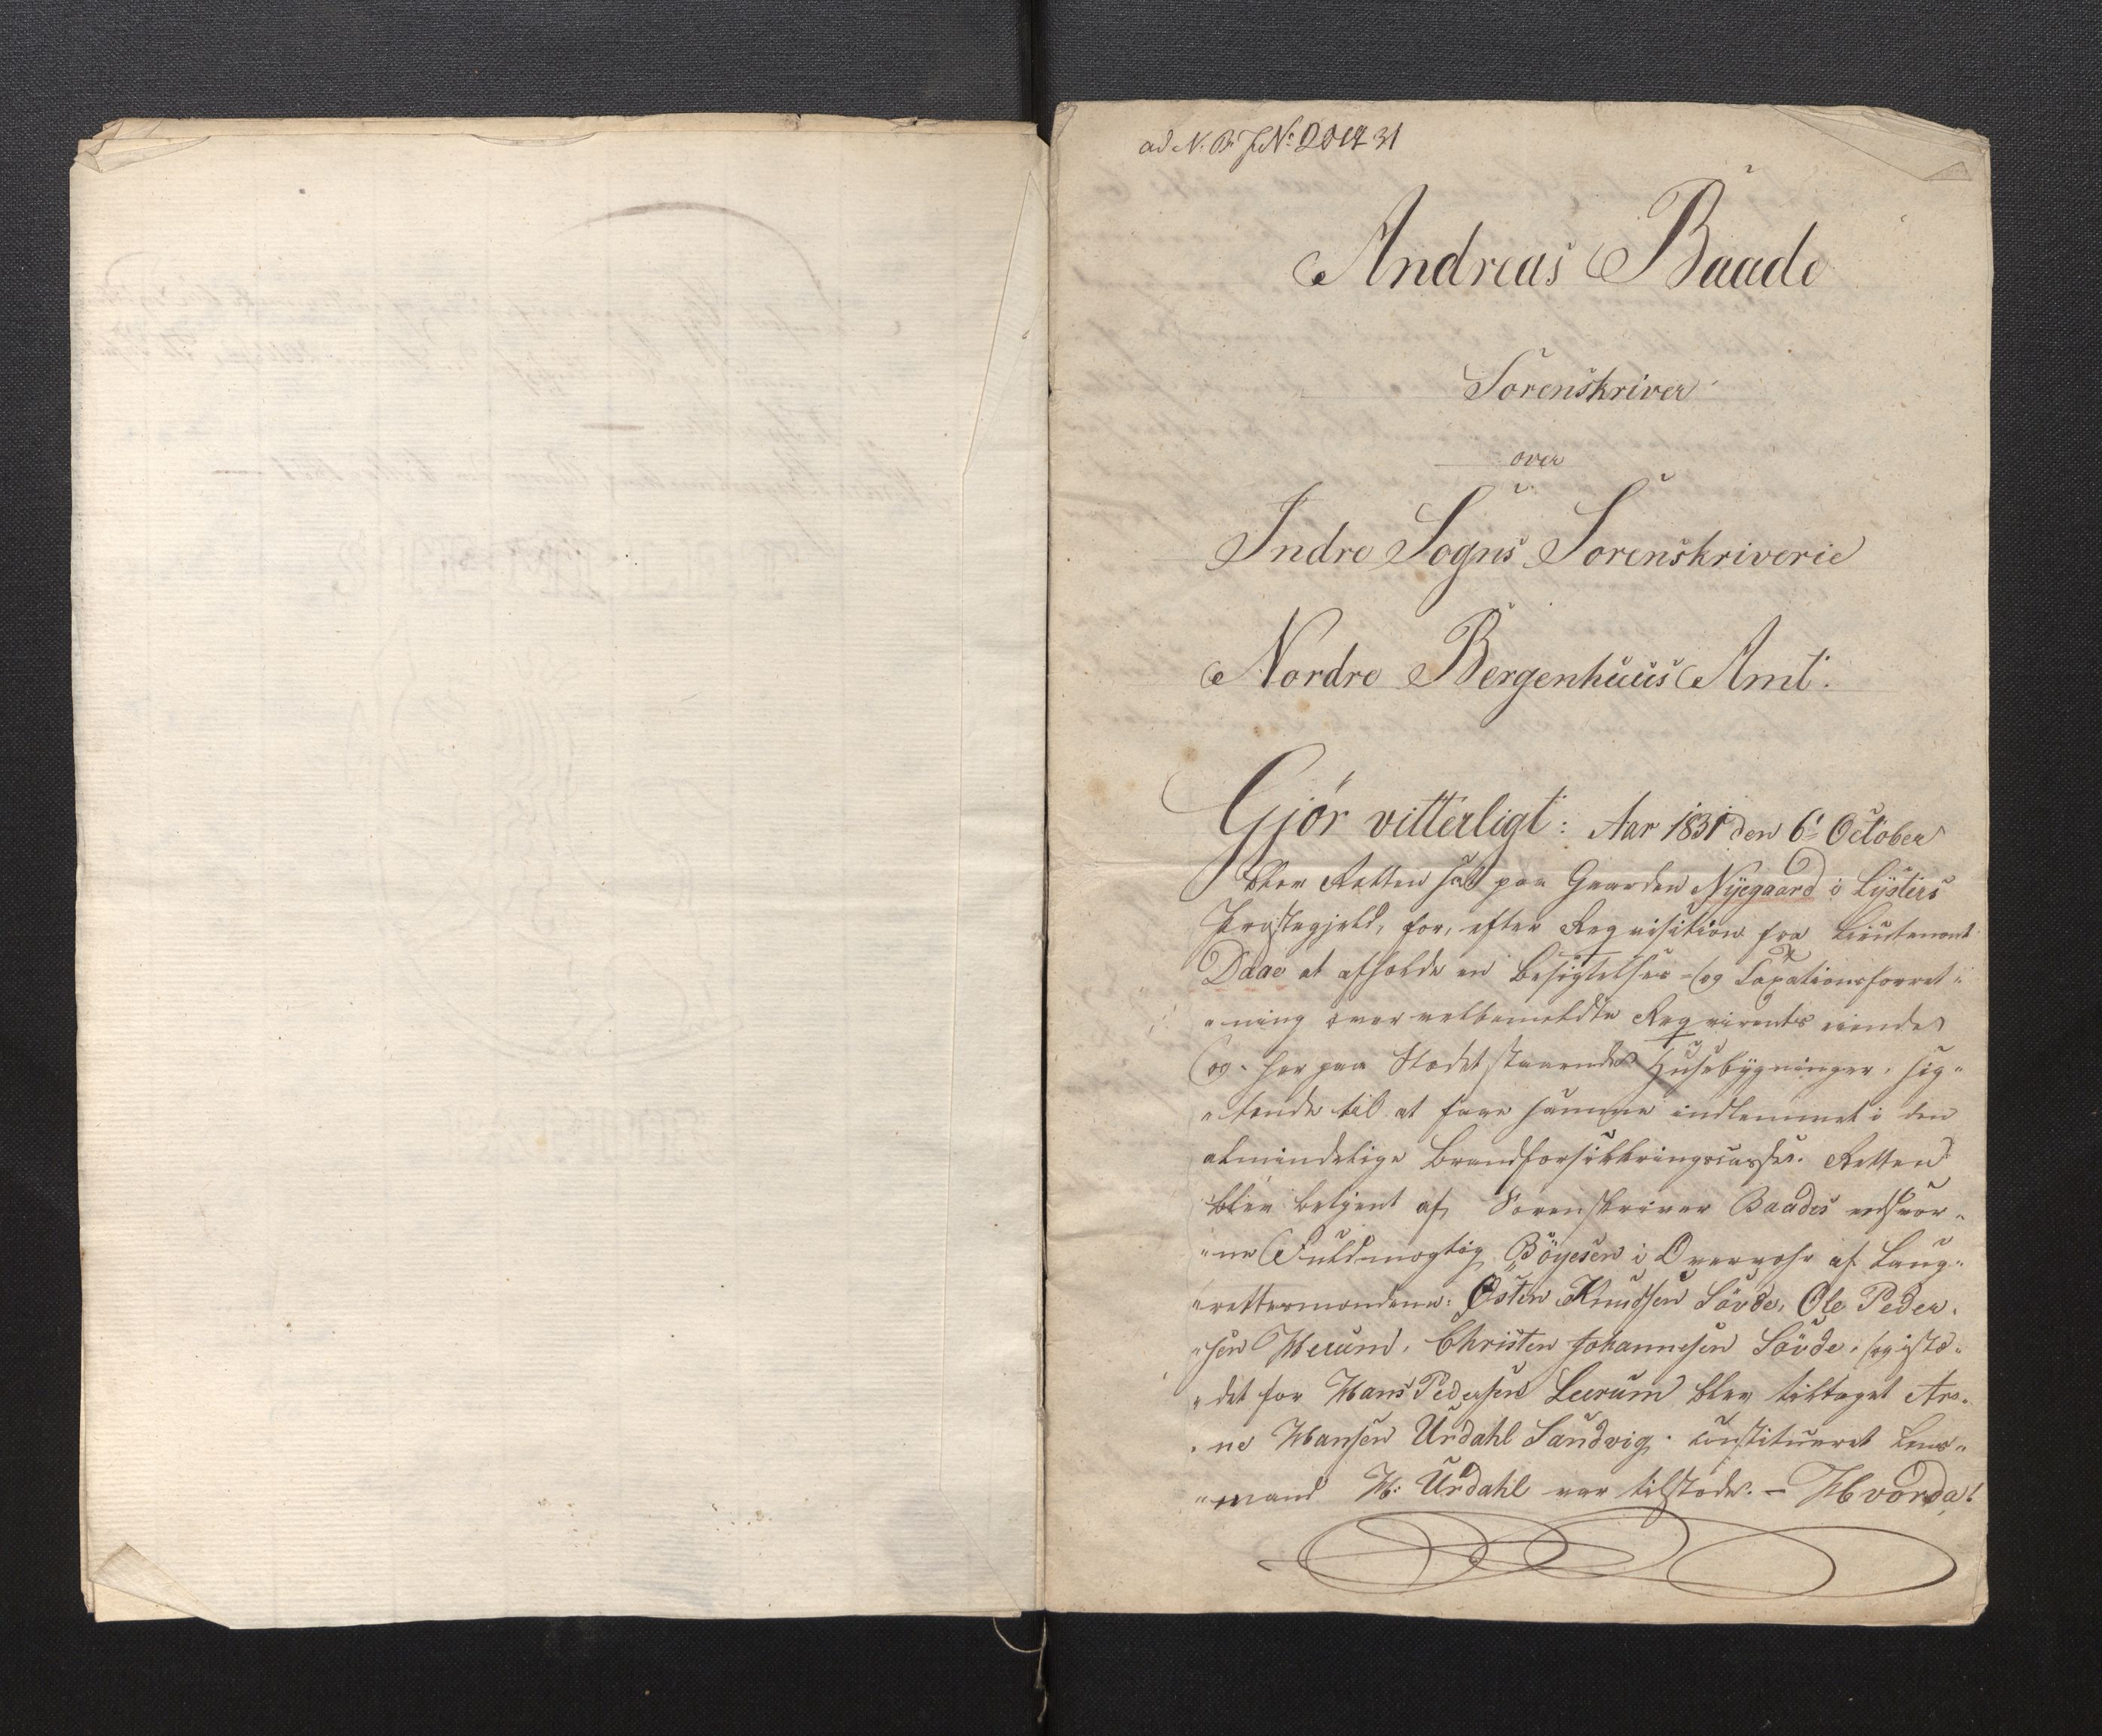 ad N. B. J. No 2042 31
Andreas Baade
Sorenskriver
over
Indre Sogns Sorenskriverie
Nordre Bergenhuus Amt.
Gjör vitterligt: Aar 1831 den 6te October
blev Retten sat paa Gaarden Nÿegaard i Lÿsters
Præstegjeld, for, efter Requisition fra Lieutenant
Daae at afholde en Besigtelses- og Taxationsforret-
"ning over velbemeldte Reqvirents eiende
og her paa Stædet staaende Husebÿgninger, sig-
"tende til at faae samme indlemmet i den
almindelige Brandforsikkringscasse. Retten
blev betjent af Sorenskriver Baades edsvor-
"ne Fuldmægtig Böyesen i Overvær af Laug-
"rettesmændene: Östen Knudsen Sövde, Ole Peder-
"sen Herum, Christen Johannesen Sövde, og istæ-
"det for Hans Pedersen Leerum blev tiltaget Ar-
"ne Hansen Urdahl Sandvig. constitueret Lens-
"mand H: Urdahl var tilstæde. – Hvorda!